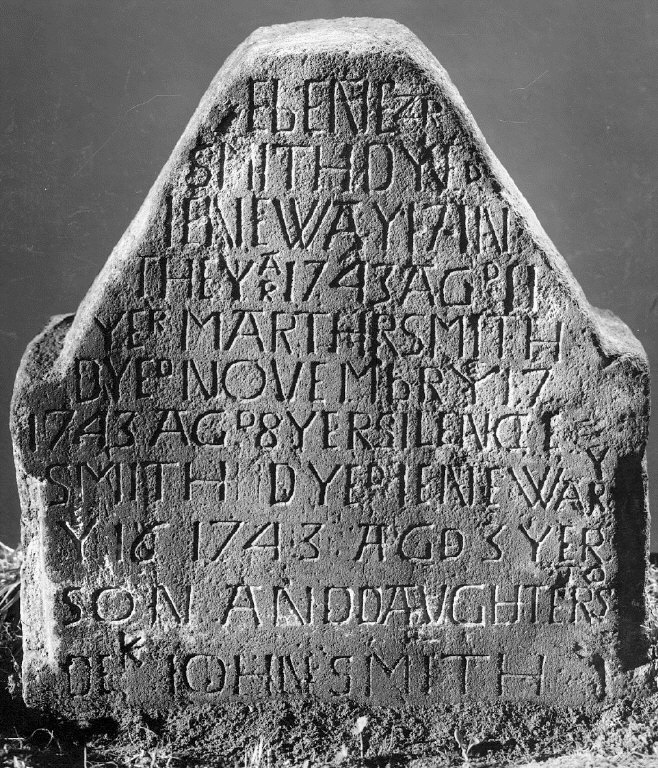 EbENEZR
SMITH DYED
IENEWAY 17 IN
THE YAR 1743 AGD 11
YER MARTH SMITH
DYED NOVEMbR Y 17
1743 AGD 8 YER SILENCE
SMITH DYED IENEWARY
Y 16 1743 AGD 3 YER
SON AND DAUGHTERS OF
DEK IOHN SMITH